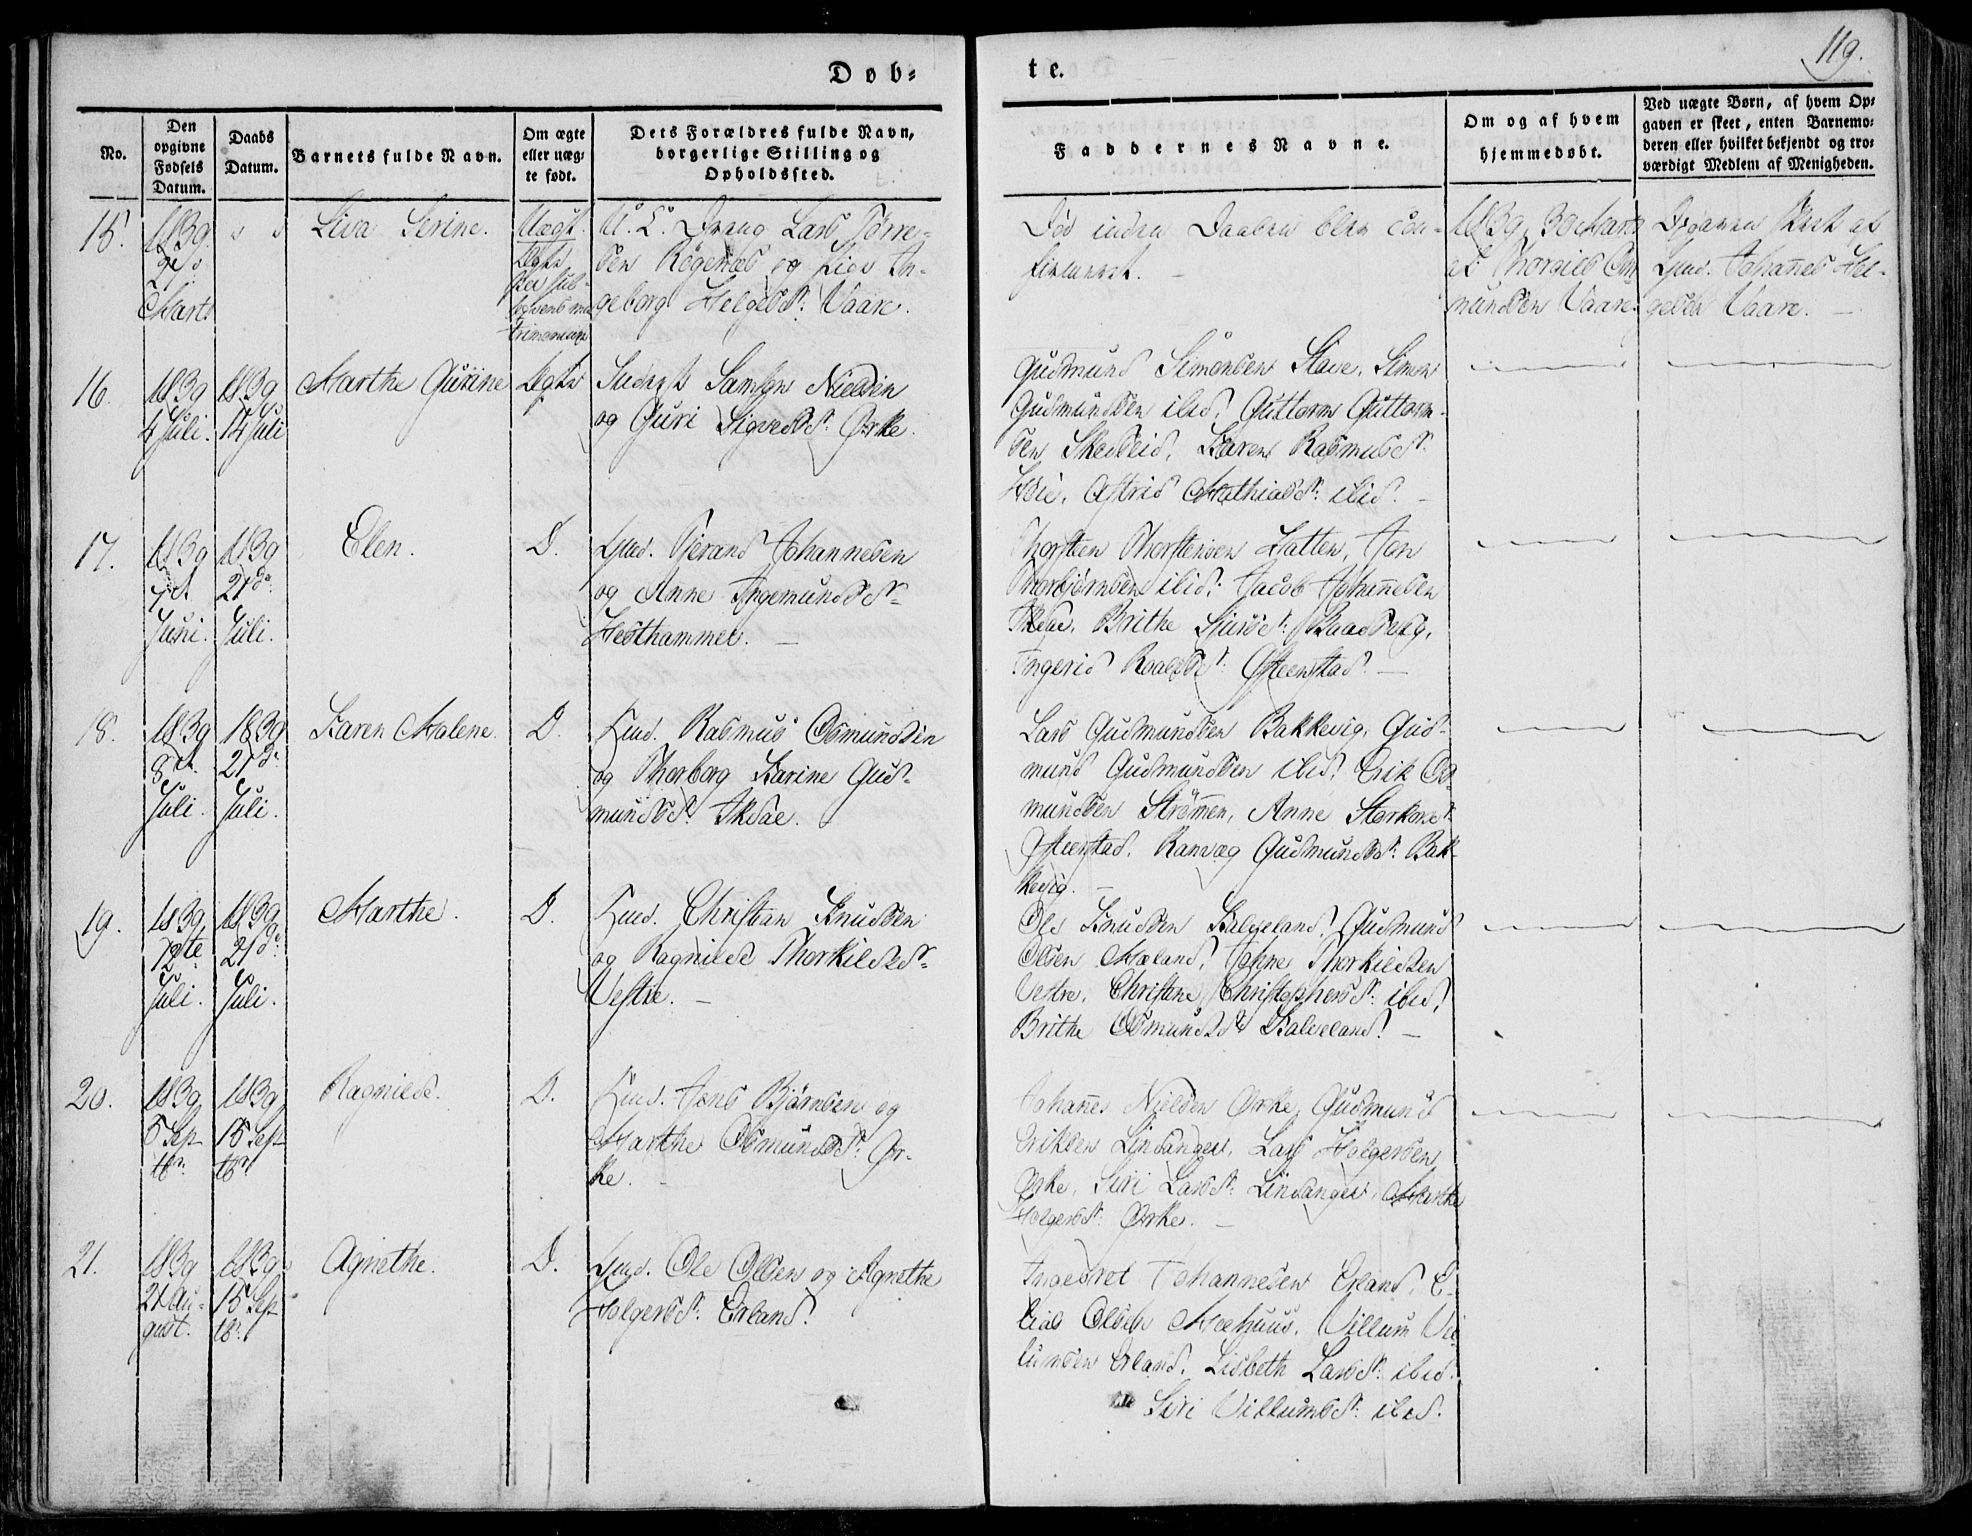 119.
Døb=
te.
No.
Den
opgivne
Fødsels
Datum.
Daabs
Datum.
Barnets fulde Navn.
Om ægte
eller uæg-
te født.
Dets Forældres fulde Navn,
borgerlige Stilling og
Opholdssted.
Faddernes Navne.
Om og af hvem
hjemmedøbt.
Ved uægte Børn, af hvem Op=
gaven er skeet, enten Barnemo=
deren eller hvilket bekjendt og tro=
værdigt Medlem af Menigheden.
15.
1839
Marts
Liva Serine.
Uægt.
Ægte
U. C. Dreng Lars Tørre-
sen Røgenæs og Pige In-
geborg Helgesdr. Vaare.
Død inden Daaben blev con-
firmeret.
1839 30 Marts
af Thorgils Os-
mundsen Vaare.
Opgaven skeet af
Gmd. Johannes Hel-
gesen Vaare.
16.
1839
4 Juli.
1839
14 Juli
Marthe Gurine
Ægte
Samson Nielsen
og Guri Sigvedsdr. Ørke.
Gudmund Simonsen Stave, Simon
Gudmundsen ibid, Guttorm Guttorm-
sen Skeiseid, Karen Rasmusdr.
Høie, Astrid Mathiasdr. ibid.
17.
1839
7de
Juni.
1839
21de
Juli.
Elen.
D.
Gmd. Tjerand Johannesen
og Anne Ingemundsdr.
Hesthammer.
Thorsten Thorstensen Hatten, Jon
Thorbjørnsen ibid, Jacob Johannesen
Ilsvaag, Brithe Sjursdr.
Ingerid Roaldsdr. Østenstad.
18.
1839
8de
Juli.
1839
21de
Juli.
Karen Malene.
D.
Gmd. Rasmus Osmundsen
og Thorborg Karine Gud-
mundsdr.
Lars Gudmundsen Bakkevig, Gud-
mund Gudmundsen ibid, Erik Os-
mundsen Strømmen, Anne Størkorsdr.
Østenstad, Ranvæg Gudmundsdr. Bak-
kevig.
19.
1839
12te
Juli.
1839
21de
Juli.
Marthe.
D.
Gmd. Christian Knudsen
og Ragnilde Thorkildsdr.
Vestre.
Ole Knudsen Kalveland, Gudmund
Olsen Mæland, Johne Thorkildsen
Vestre, Christine Christophersdr. ibid,
Brithe Osmundsdr. Kalveland.
20.
1839
5 Sep-
tbr.
1839
15 Sept
tbr.
Ragnilde.
D.
Gmd. Jens Bjørnsen og
Marthe Osmundsdr. Ør-
ke.
Johannes Nielsen Ørke, Gudmund
Eriksen Lindanger, Lars Holgersen
Ørke, Siri Larsdr. Lindanger, Marthe
Holgersdr. Ørke.
21.
1839
21 Au-
gust.
1839
15 Sep-
tbr.
Agnethe.
D.
Gmd. Ole Olsen og Agnethe
Holgersdr. Erland.
Ingebret Johannesen Erland, E-
lias Olsen Meehuus, Villum Vil-
lumsen Erland, Lisbeth Larsdr. ibid.
Siri Villumsdr. ibid.